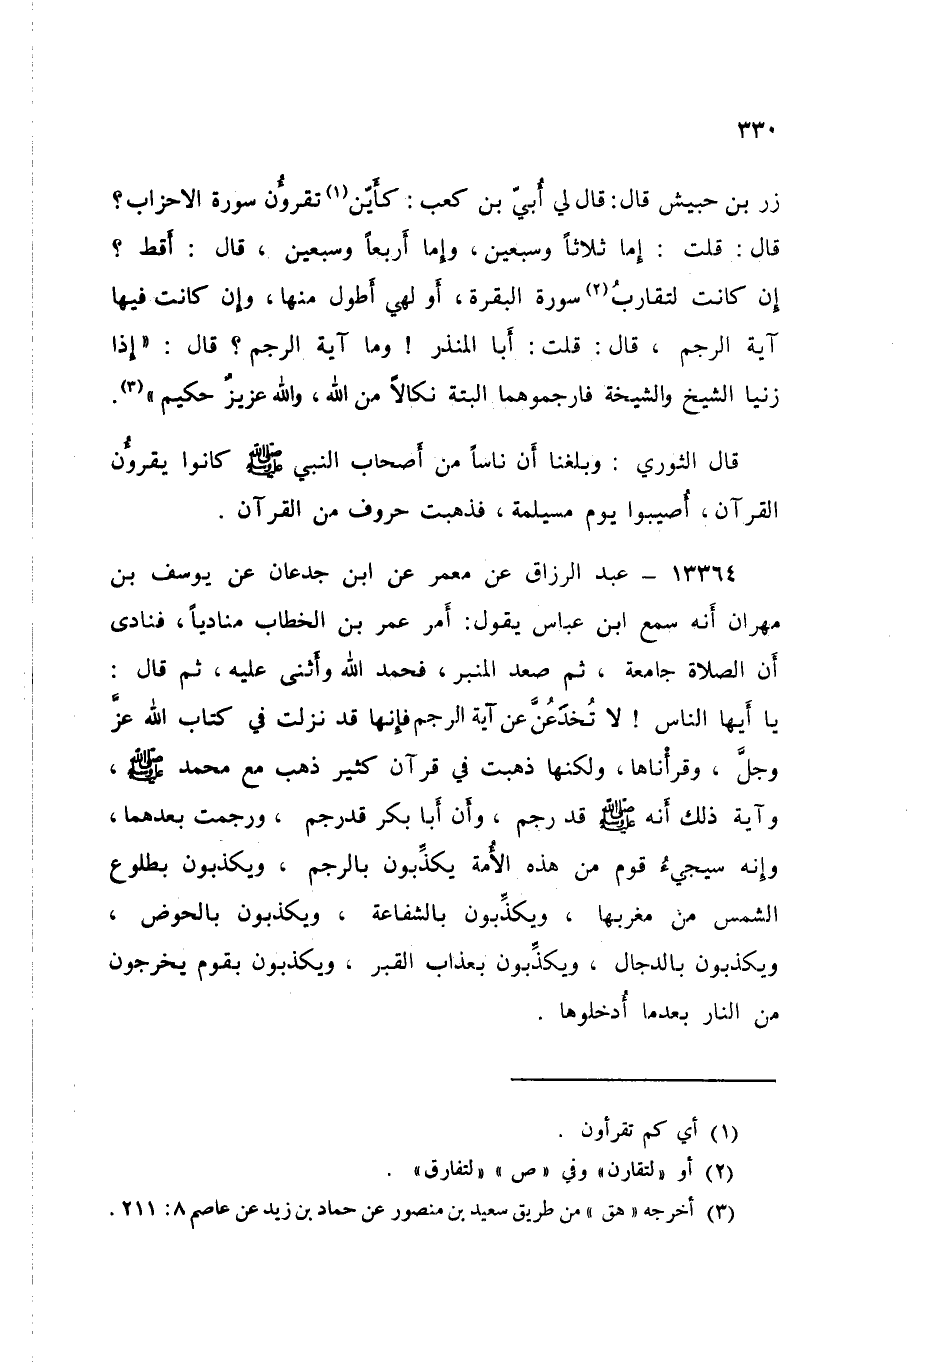 ٣٣٠
زر بن حبيش قال: قال لي أُبيّ بن كعب : كأَيّن(١) تقرؤُن سورة الاحزاب؟
قال : قلت : إما ثلاثاً وسبعين ، وإما أربعاً وسبعين ، قال : أَقط ؟
إن كانت لتقاربُ(٢) سورة البقرة ، أَو لهي أَطول منها ، وإن كانت فيها
آية الرجم ، قال : قلت : أَبا المنذر ! وما آية الرجم ؟ قال : « إذا
زنيا الشيخ والشيخة فارجموهما البتة نكالاً من الله ، والله عزيزٌ حكيم »(٣).
قال الثوري : وبلغنا أن ناساً من أَصحاب النبي ﷺ كانوا يقرؤُن
القرآن ، أُصيبوا يوم مسيلمة ، فذهبت حروف من القرآن .
١٣٣٦٤ – عبد الرزاق عن معمر عن ابن جدعان عن يوسف بن
مهران أَنه سمع ابن عباس يقول: أَمر عمر بن الخطاب منادياً ، فنادى
أَن الصلاة جامعة ، ثم صعد المنبر ، فحمد الله وأَثنى عليه ، ثم قال :
يا أَيها الناس ! لا تُخدَعُنَّ عن آية الرجم فإنها قد نزلت في كتاب الله عزَّ
وجلَّ ، وقرأْناها ، ولكنها ذهبت في قرآن كثير ذهب مع محمد ﷺ ،
وآية ذلك أَنه ﷺ قد رجم ، وأَن أَبا بكر قدرجم ، ورجمت بعدهما ،
وإنه سيجيءُ قوم من هذه الأُمة يكذِّبون بالرجم ، ويكذبون بطلوع
الشمس من مغربها ، ويكذِّبون بالشفاعة ، ويكذبون بالحوض ،
ويكذبون بالدجال ، ويكذِّبون بعذاب القبر ، ويكذبون بقوم يخرجون
من النار بعدما أُدخلوها .
(١) أي كم تقرأون .
(٢) أو «لتقارن» وفي « ص » «لتفارق» .
(٣) أخرجه « هق » من طريق سعيد بن منصور عن حماد بن زيد عن عاصم ٨: ٢١١ .